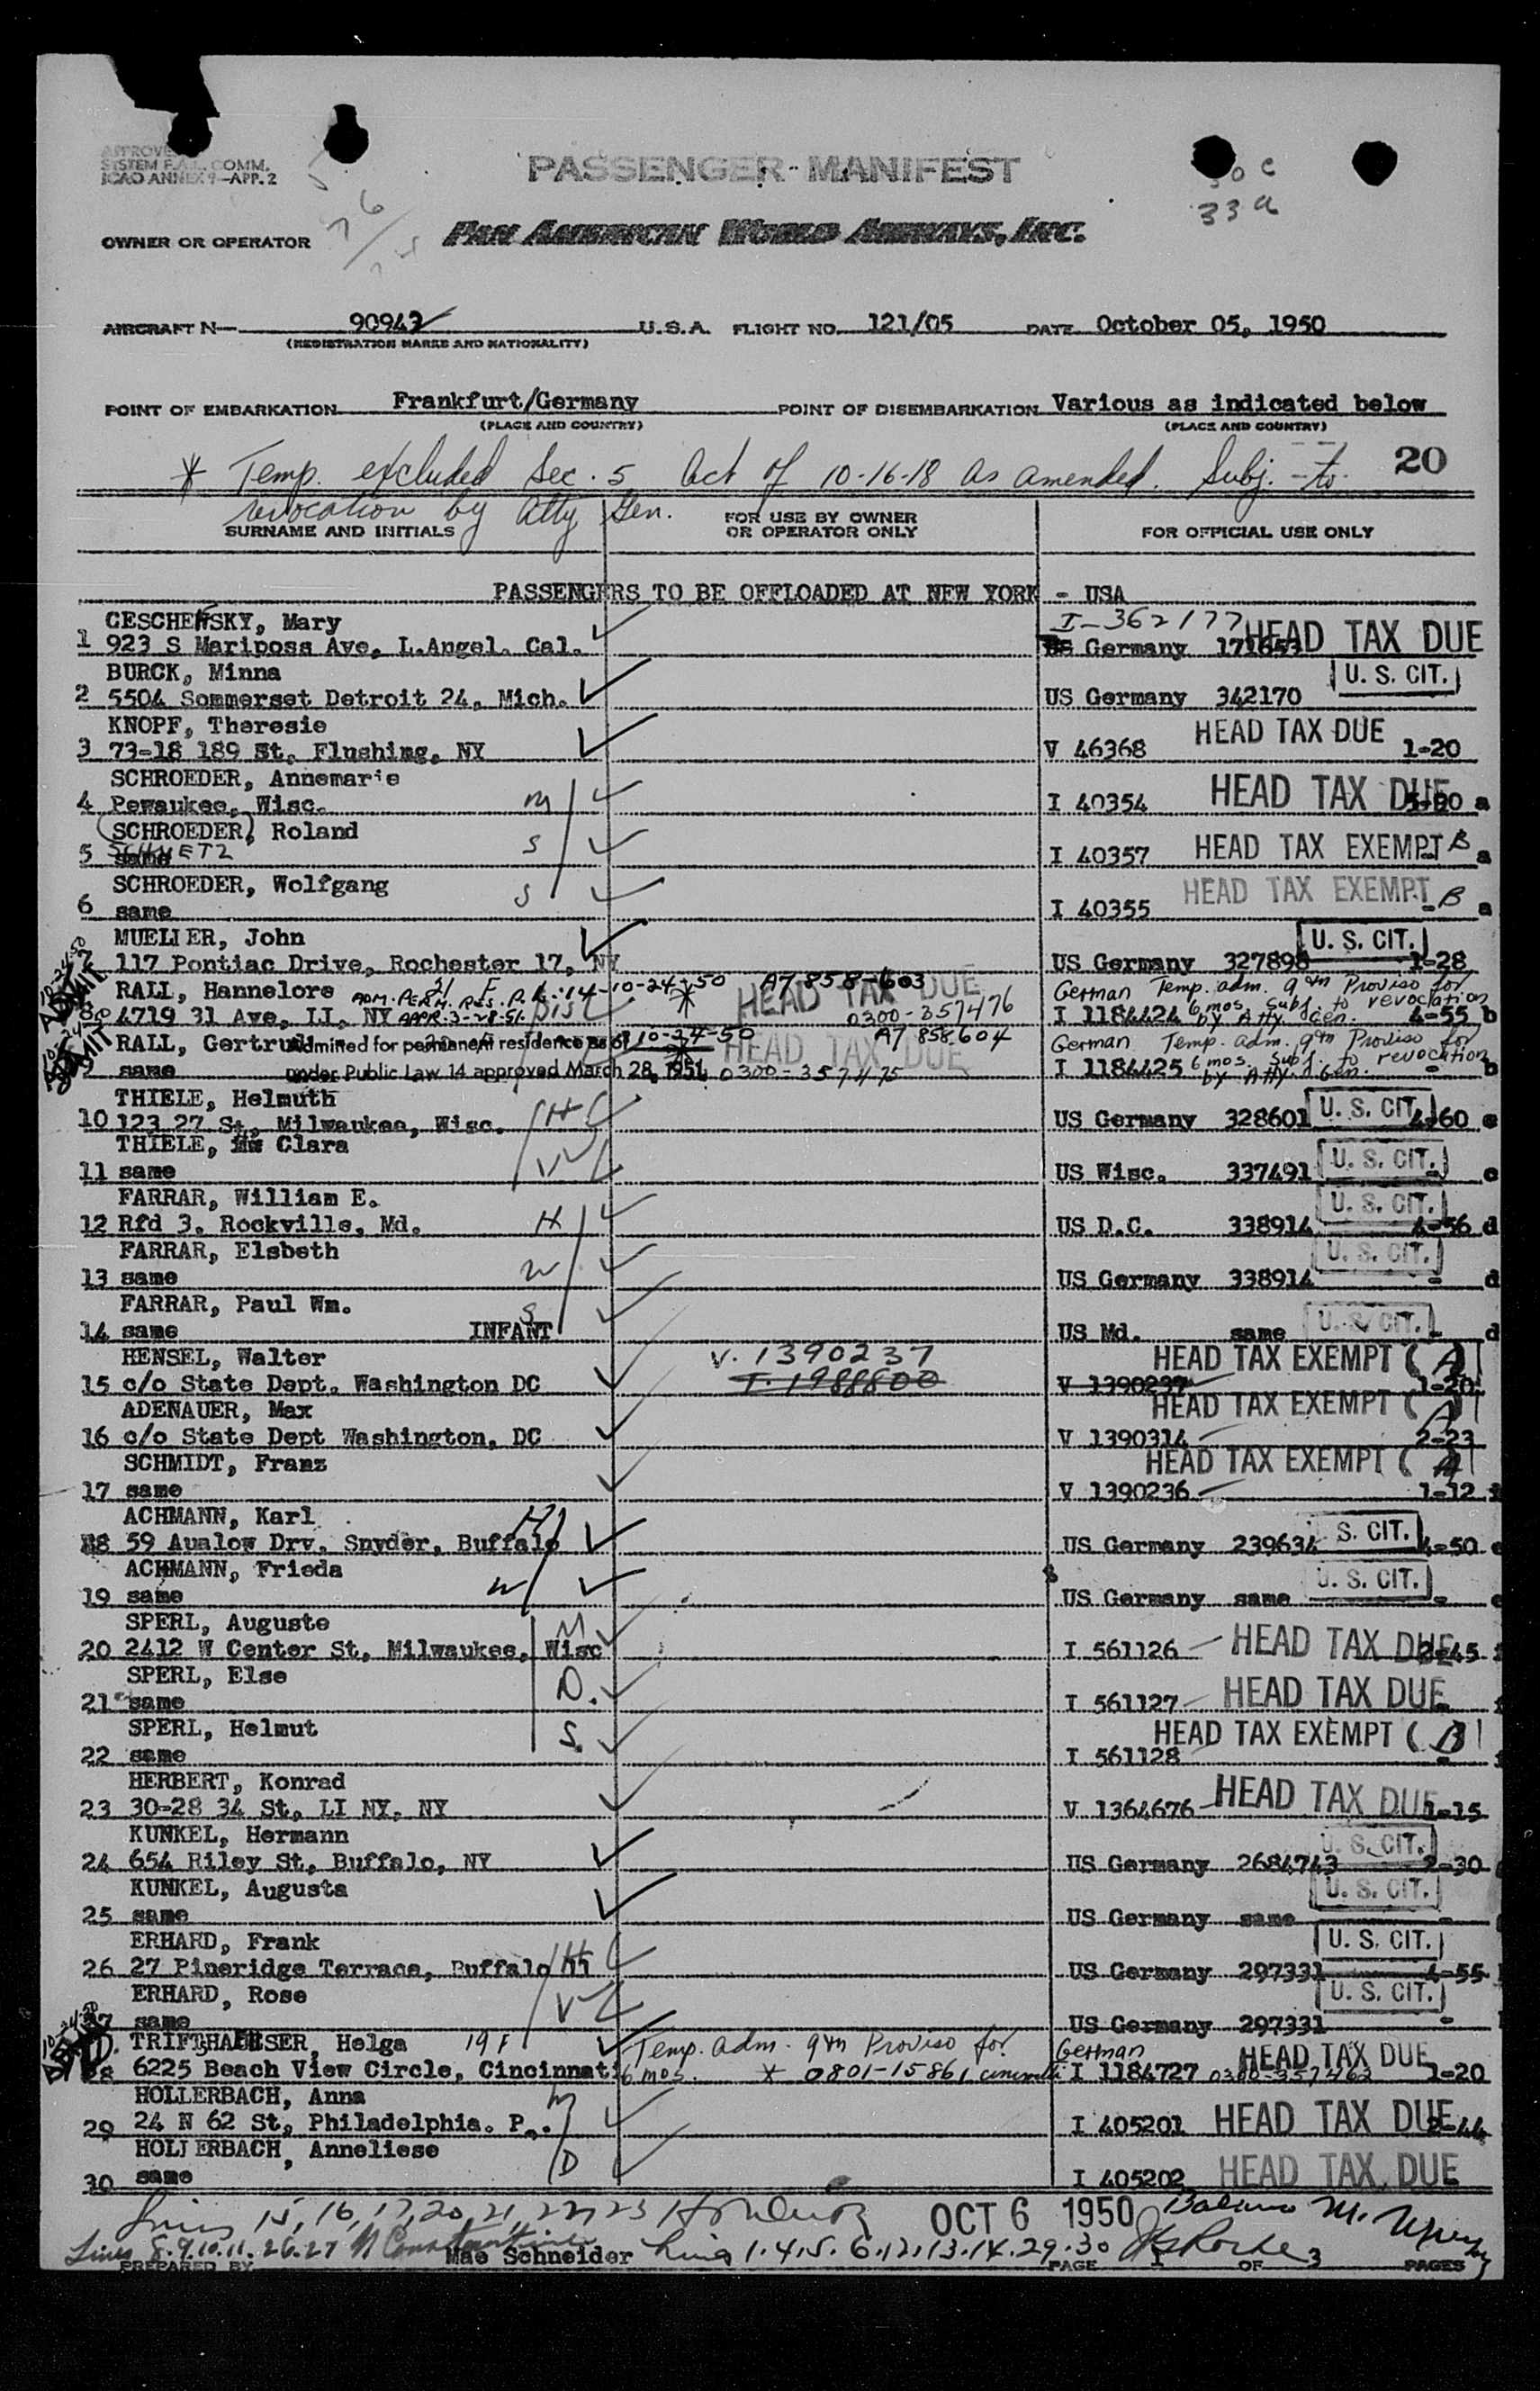 APPROVE
SYSTEM F.A.L. COMM.
ICAO ANNEX 9—APP. 2
PASSENGER MANIFEST
33 a
OWNER OR OPERATOR PAN AMERICAN WORLD AIRWAYS, INC.
AIRCRAFT N— 90942 U.S.A. FLIGHT NO. 121/05 DATE October 05, 1950
(REGISTRATION MARKS AND NATIONALITY)
POINT OF EMBARKATION Frankfurt/Germany POINT OF DISEMBARKATION Various as indicated below
(PLACE AND COUNTRY) (PLACE AND COUNTRY)
* Temp. excluded Sec. 5 Act of 10-16-18 as amended. Subj. to 20
revocation by Atty Gen.
SURNAME AND INITIALS FOR USE BY OWNER OR OPERATOR ONLY FOR OFFICIAL USE ONLY
PASSENGERS TO BE OFFLOADED AT NEW YORK - USA
GESCHENSKY, Mary I-362177 HEAD TAX DUE
1 923 S Mariposa Ave, L.Angel. Cal. Germany 171653
BURCK, Minna U. S. CIT.
2 5504 Sommerset Detroit 24, Mich. US Germany 342170
KNOPF, Theresie HEAD TAX DUE
3 73-18 189 St, Flushing, NY V 46368 1-20
SCHROEDER, Annemarie HEAD TAX DUE
4 Pewaukee, Wisc. M I 40354 a
(SCHROEDER), Roland HEAD TAX EXEMPT B
5 SCHUETZ same S I 40357 a
SCHROEDER, Wolfgang S HEAD TAX EXEMPT B
6 same I 40355 - a
MUELLER, John U. S. CIT.
7 117 Pontiac Drive, Rochester 17, NY US Germany 327898 1-28
RALL, Hannelore 21 F 10-24-50 A7-858-603 HEAD TAX DUE German Temp. adm. 9th Proviso for
8 4719 31 Ave, LI, NY ADM. PERM. RES. P.L. 14- APPR. 3-28-51 * 0300-357476 I 1184424 6 mos. Subj. to revocation by Atty Gen. 4-55 b
RALL, Gertrud Admitted for permanent residence as of 10-24-50 A7 858604 HEAD TAX DUE German Temp. adm. 9th Proviso for
9 same under Public Law 14 approved March 28, 1951 * 0300-357475 I 1184425 6 mos. Subj. to revocation by Atty Gen. - b
THIELE, Helmuth H U. S. CIT.
10 123 27 St, Milwaukee, Wisc. US Germany 328601 4-60 c
THIELE, Clara W U. S. CIT.
11 same US Wisc. 337491 - c
FARRAR, William E. H U. S. CIT.
12 Rfd 3, Rockville, Md. US D.C. 338914 4-56 d
FARRAR, Elsbeth W U. S. CIT.
13 same US Germany 338914 - d
FARRAR, Paul Wm. S U. S. CIT.
14 same INFANT US Md. same - d
HENSEL, Walter V. 1390237 HEAD TAX EXEMPT (A)
15 c/o State Dept. Washington DC I. 1988800 V 1390237 1-20
ADENAUER, Max HEAD TAX EXEMPT (A)
16 c/o State Dept Washington, DC V 1390314 2-23
SCHMIDT, Franz HEAD TAX EXEMPT (A)
17 same V 1390236 1-12
ACHMANN, Karl H S. CIT.
18 59 Aualow Drv. Snyder, Buffalo US Germany 239634 4-50
ACHMANN, Frieda W U. S. CIT.
19 same US Germany same -
SPERL, Auguste M HEAD TAX DUE
20 2412 W Center St, Milwaukee, Wisc I 561126 2-45
SPERL, Else D. HEAD TAX DUE
21 same I 561127
SPERL, Helmut S. HEAD TAX EXEMPT (B)
22 same I 561128 -
HERBERT, Konrad HEAD TAX DUE
23 30-28 34 St, LI NY, NY V 1364676 1-15
KUNKEL, Hermann U. S. CIT.
24 654 Riley St, Buffalo, NY US Germany 2684743 2-30
KUNKEL, Augusta U. S. CIT.
25 same US Germany same -
ERHARD, Frank H U. S. CIT.
26 27 Pineridge Terrace, Buffalo US Germany 297331 4-55
ERHARD, Rose W U. S. CIT.
27 same US Germany 297331 -
TRIFTSHAEUSER, Helga 19 F Temp. adm. 9th Proviso for German HEAD TAX DUE
28 6225 Beach View Circle, Cincinnati 6 mos. * 0801-15861 I 1184727 0300-357462 1-20
HOLLERBACH, Anna M HEAD TAX DUE
29 24 N 62 St, Philadelphia. P. I 405201 2-44
HOLLERBACH, Anneliese D HEAD TAX DUE
30 same I 405202
Lines 15, 16, 17, 20, 21, 22, 23 OCT 6 1950
Lines 8. 9. 10. 11. 26. 27 Mae Schneider Line 1. 4. 5. 6. 12. 13. 14. 29. 30
PREPARED BY PAGE 1 OF 3 PAGES